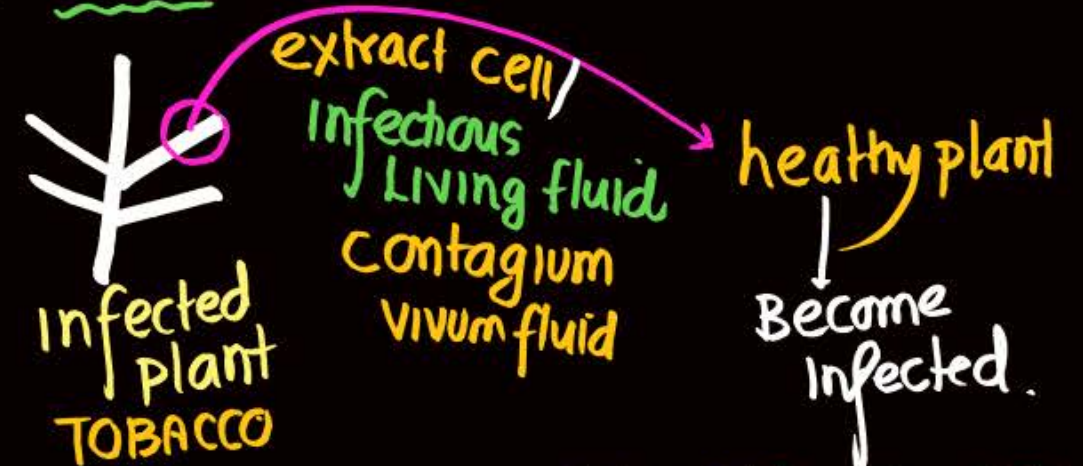 extract cell/
Infectious
Living fluid
Contagium
vivum fluid
Infected
plant
TOBACCO
heathy plant
Become
Infected.